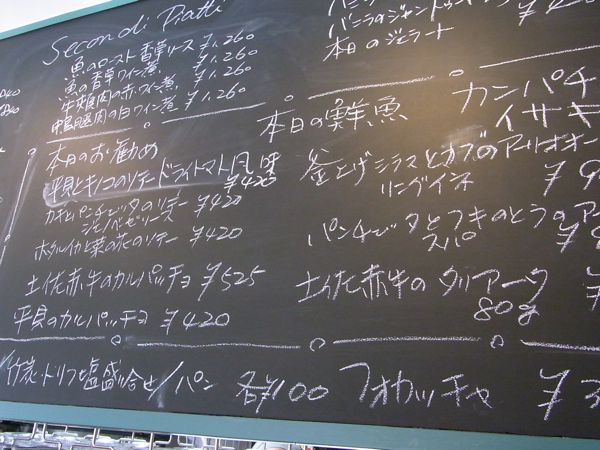 Secondi Piatti
魚のロースト香草ソース ¥1,260
魚の香草ワイン煮 ¥1,260
牛頬肉の赤ワイン煮 ¥1,260
鶏肉の白ワイン煮 ¥1,260
バニラのジェラート
本日のジェラート
本日の鮮魚 カンパチ
イサキ
本日のお勧め
平貝とキノコのソテードライトマト風味
¥420
カキとパンチェッタのソテー
ジェノベーゼソース ¥420
ホタルイカと菜の花のソテー ¥420
土佐赤牛のカルパッチョ ¥525
平貝のカルパッチョ ¥420
釜上げシラスとカブのアーリオオー
リングイネ
パンチェッタとフキのとうのアー
スパ
土佐赤牛のタリアータ
80g
竹炭・トリフ塩盛合せ/パン 各¥100 フォカッチャ ¥3